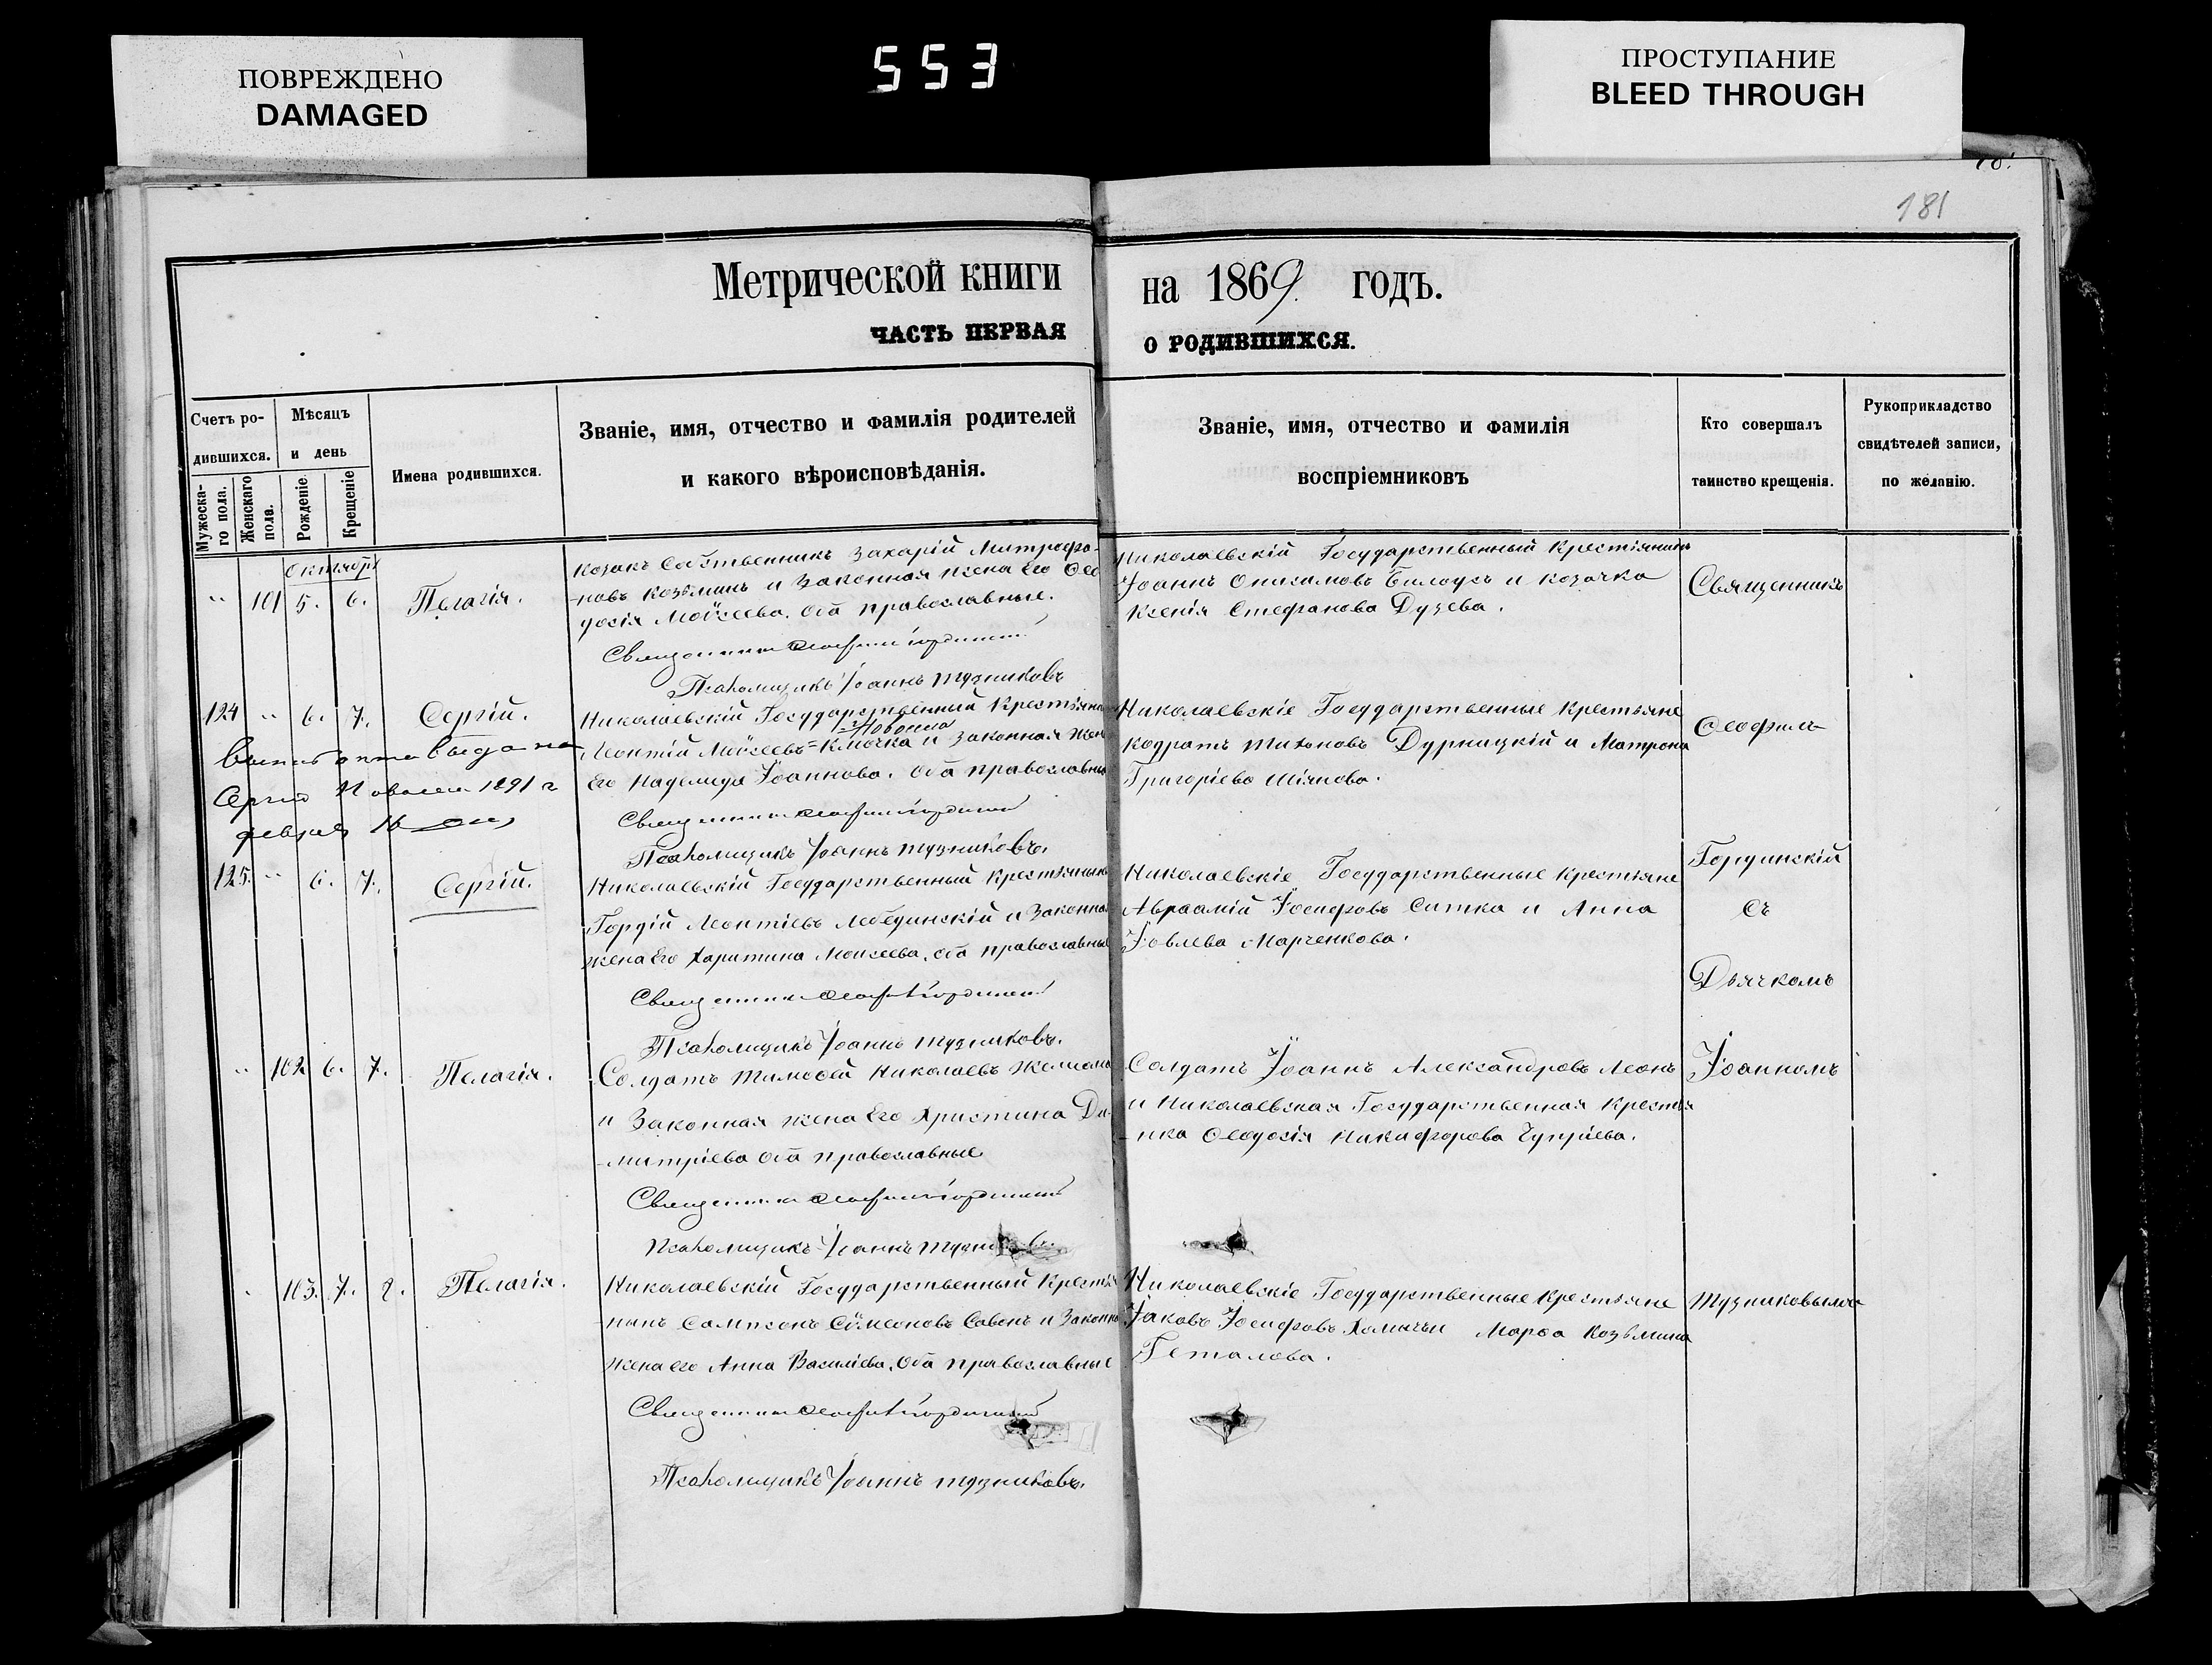 ПОВРЕЖДЕНО
DAMAGED
553
ПРОСТУПАНИЕ
BLEED THROUGH
181
Метрической книги на 1869. годъ.
ЧАСТЬ ПЕРВАЯ О РОДИВШИХСЯ.
Счетъ ро-
дившихся.
Мужеска-
го пола.
Женскаго
пола.
Мѣсяцъ
и день
Рожденіе
Крещеніе
Имена родившихся.
Званіе, имя, отчество и фамилія родителей
и какого вѣроисповѣданія.
Званіе, имя, отчество и фамилія
воспріемниковъ
Кто совершалъ
таинство крещенія.
Рукоприкладство
свидѣтелей записи,
по желанію.
Октября
" 101 5. 6. Пелагія.
Козакъ Собственникъ Захарій Митрофа-
-новъ Козьминъ и Законная жена Его Ѳео
досія Моѵсеева. Оба православные.
Священникъ Ѳеофилъ Гординскій
Псаломщикъ Іоаннъ Тузниковъ
Николаевскій Государственный Крестьянинъ
Іоаннъ Онисимовъ Билоусъ и козачка
Ксенія Стефанова Дузева.
124 " 6. 7. Сергій.
Николаевскій Государственный Крестьянин
Леонтій Моѵсеевъ Клочка и Законная жен
Его Надежда Іоаннова. Оба православные
Священникъ Ѳеофилъ Гординскій
Псаломщикъ Іоаннъ Тузниковъ.
Николаевскіе Государственные Крестьяне
Кодратъ Тихоновъ Дурницкій и Матрона
Григоріева
выдана
1891 г
февраля 16
125. " 6. 7. Сергій.
Николаевскій Государственный Крестьянинъ
Гордій Леонтіевъ Лебединскій и Законна
жена Его Харитина Моисеева. Оба православные
Священникъ Ѳеофилъ Гординскій
Псаломщикъ Іоаннъ Тузниковъ.
Николаевскіе Государственные Крестьяне
Авраамій Іосифовъ Ситка и Анна
Іовлева Марченкова.
" 102 6. 7. Пелагія.
Солдатъ Тимоѳей Николаевъ
и Законная жена Его Христина Ди-
-митріева Оба православные
Священникъ Ѳеофилъ Гординскій
Псаломщикъ Іоаннъ
Солдатъ Іоаннъ Александровъ Леонъ
и Николаевская Государственная Крестья
-нка Ѳеодосія Никифорова Чупріева.
103. 7. 8. Пелагія.
Николаевскій Государственный Крестья
-нинъ Сампсонъ Сѵмеоновъ Савонъ и Законна
жена его Анна Василіева. Оба православные
Священникъ Ѳеофилъ Гординскій
Псаломщикъ Іоаннъ Тузниковъ.
Николаевскіе Государственные Крестьяне
Іаковъ Іосифовъ Марѳа Козьмина
Геталова.
Священникъ
Ѳеофилъ
Гординскій
Съ
Дьячкомъ
Іоанномъ
Тузниковымъ